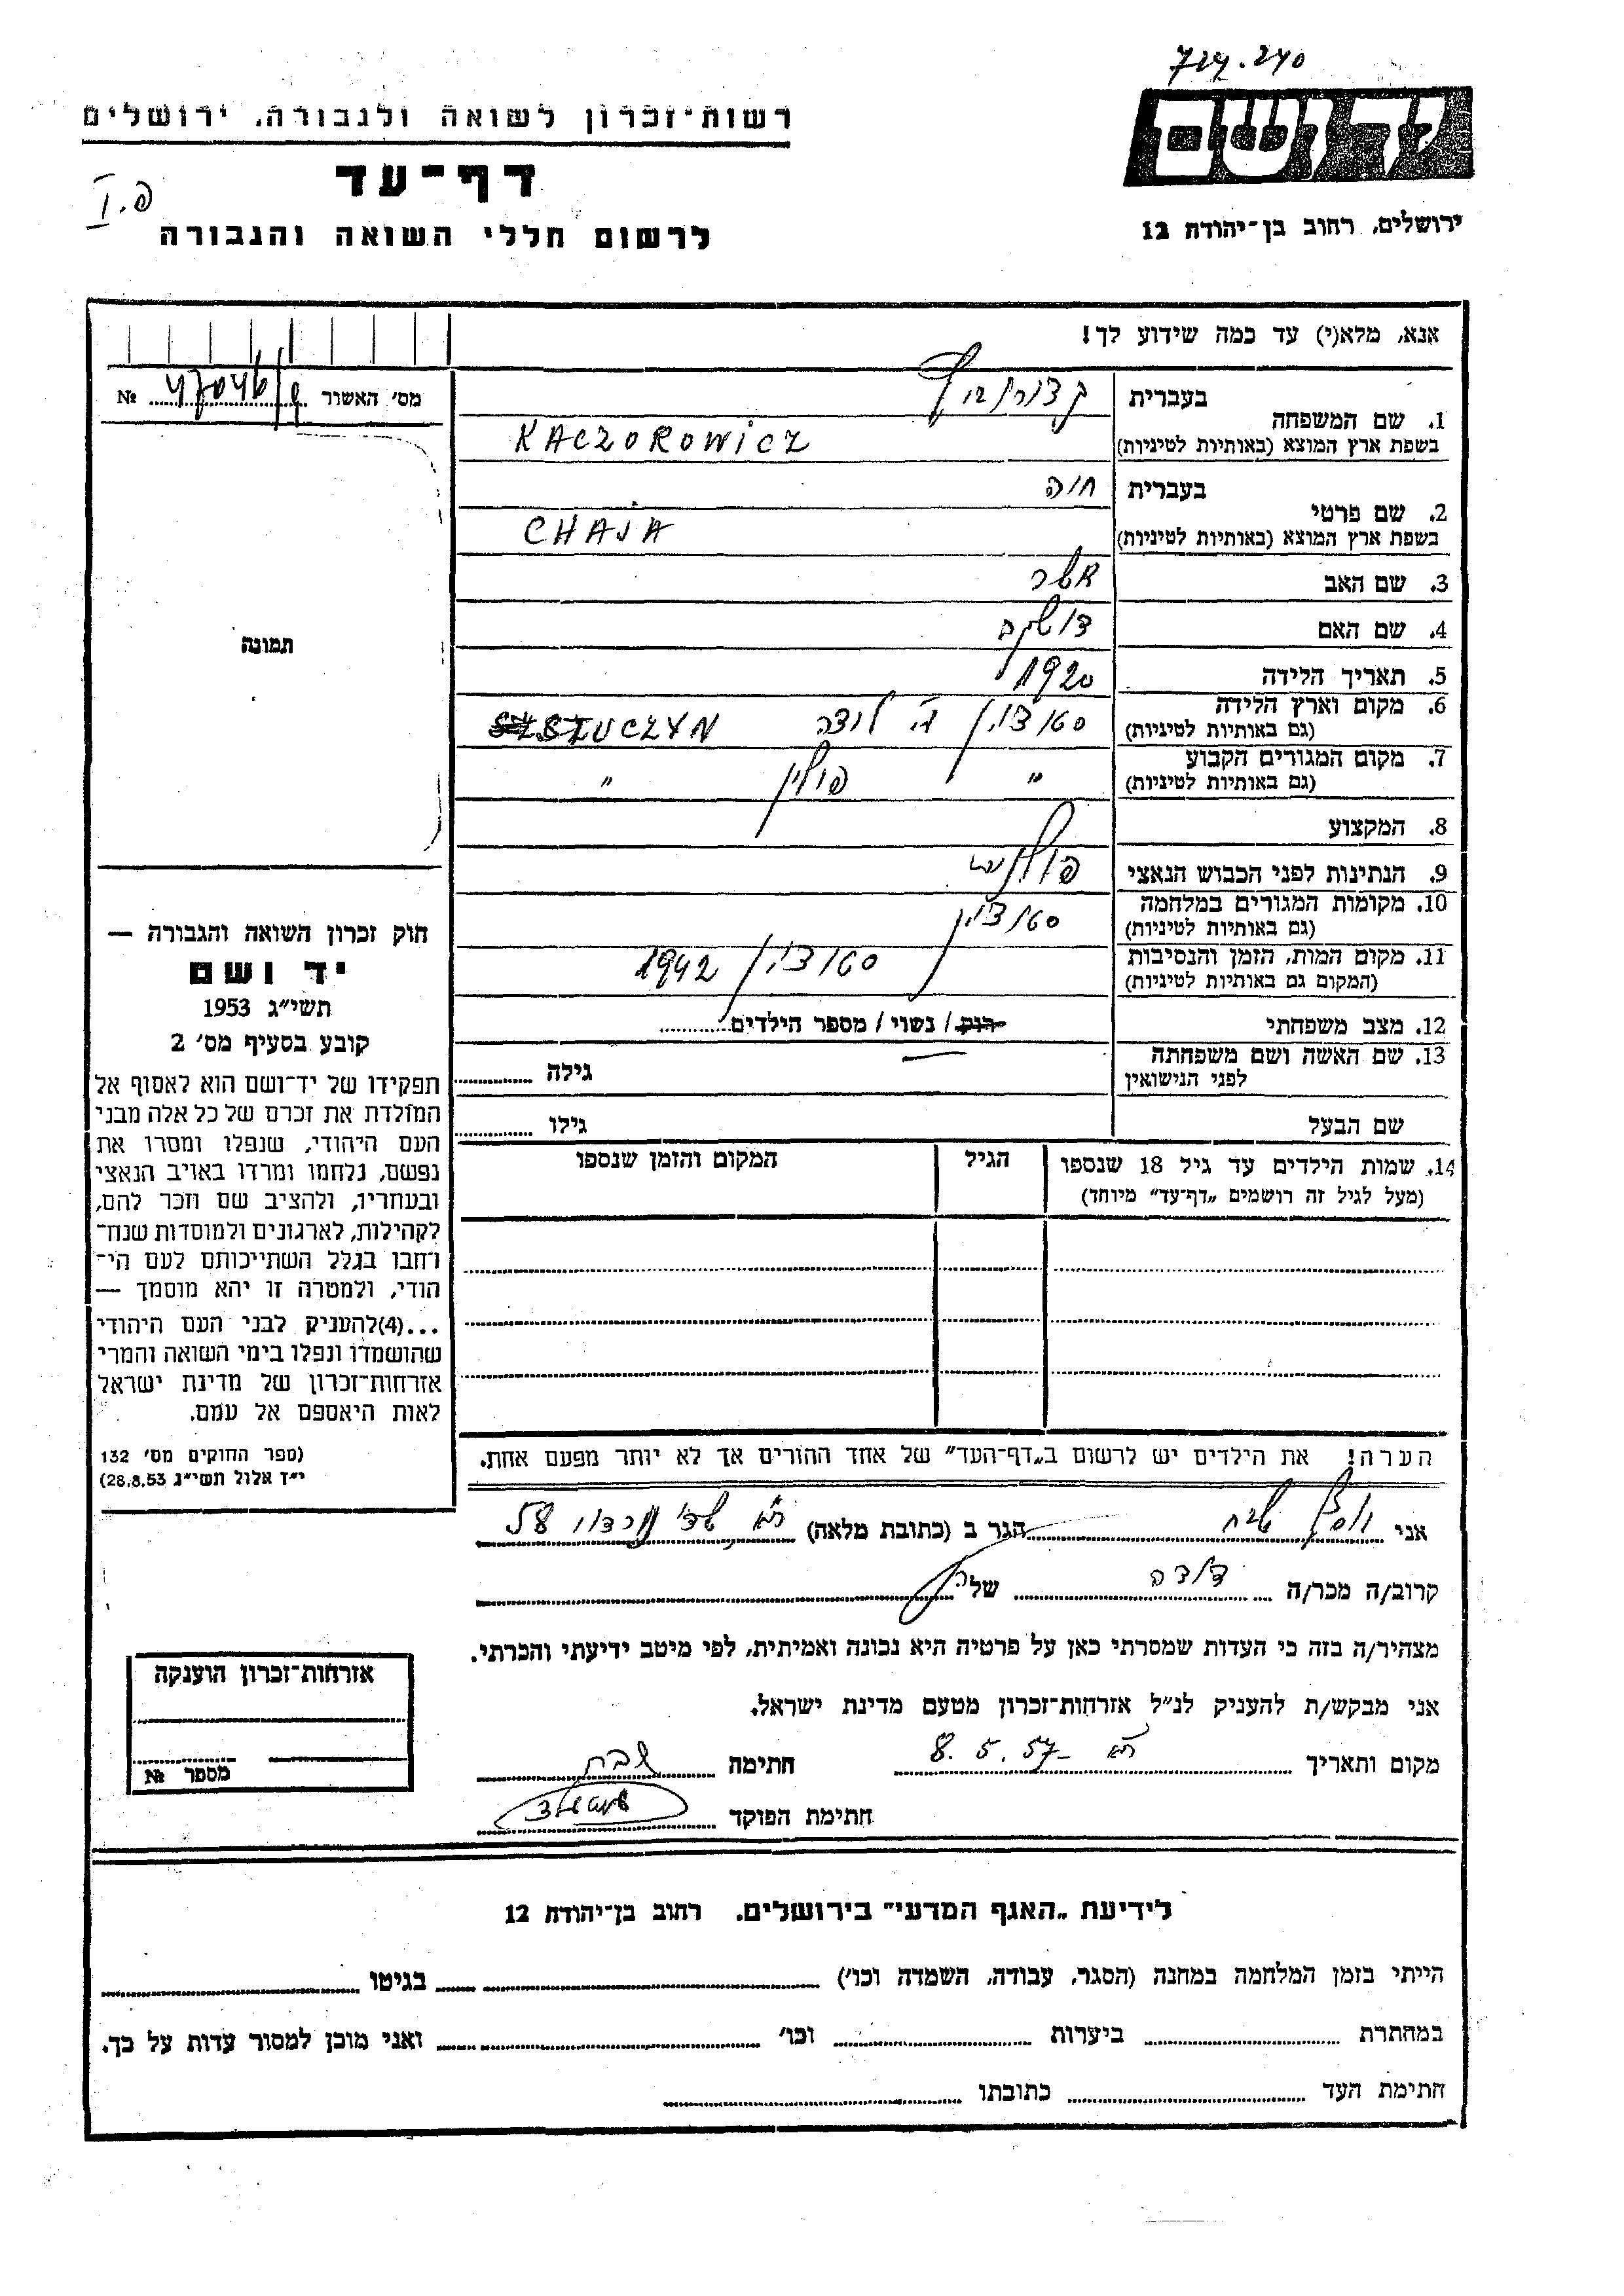 724.240
יד ושם
ירושלים, רחוב בן־יהודה 12
רשות־זכרון לשואה ולגבורה, ירושלים
דף־עד
לרשום חללי השואה והגבורה
אנא, מלא(י) עד כמה שידוע לך!
מס׳ האשור № 47046/
1. שם המשפחה בעברית
בשפת ארץ המוצא (באותיות לטיניות) KACZOROWICZ
2. שם פרטי בעברית חיה
בשפת ארץ המוצא (באותיות לטיניות) CHAJA
3. שם האב אשר
4. שם האם
5. תאריך הלידה 1920
6. מקום וארץ הלידה
(גם באותיות לטיניות)
7. מקום המגורים הקבוע " פולין "
(גם באותיות לטיניות)
8. המקצוע
9. הנתינות לפני הכבוש הנאצי פולנית
10. מקומות המגורים במלחמה
(גם באותיות לטיניות)
11. מקום המות, הזמן והנסיבות 1942
(המקום גם באותיות לטיניות)
12. מצב משפחתי רוק / נשוי / מספר הילדים
13. שם האשה ושם משפחתה לפני הנישואין גילה
שם הבעל גילו
14. שמות הילדים עד גיל 18 שנספו הגיל המקום והזמן שנספו
(מעל לגיל זה רושמים „דף־עד” מיוחד)
הערה! את הילדים יש לרשום ב„דף־העד” של אחד ההורים אך לא יותר מפעם אחת.
תמונה
חוק זכרון השואה והגבורה —
יד ושם
תשי״ג 1953
קובע בסעיף מס׳ 2
תפקידו של יד־ושם הוא לאסוף אל
המולדת את זכרם של כל אלה מבני
העם היהודי, שנפלו ומסרו את
נפשם, נלחמו ומרדו באויב הנאצי
ובעוזריו, ולהציב שם וזכר להם,
לקהילות, לארגונים ולמוסדות שנח־
רבו בגלל השתייכותם לעם הי־
הודי, ולמטרה זו יהא מוסמך —
...(4)להעניק לבני העם היהודי
שהושמדו ונפלו בימי השואה והמרי
אזרחות־זכרון של מדינת ישראל
לאות היאספם אל עמם.
(ספר החוקים מס׳ 132
י״ז אלול תשי״ג 28.8.53)
אני הגר ב (כתובת מלאה)
קרוב/ה מכר/ה דודה של
מצהיר/ה בזה כי העדות שמסרתי כאן על פרטיה היא נכונה ואמיתית, לפי מיטב ידיעתי והכרתי.
אני מבקש/ת להעניק לנ״ל אזרחות־זכרון מטעם מדינת ישראל.
מקום ותאריך 8.5.57 חתימה
חתימת הפוקד
אזרחות־זכרון הוענקה
מספר №
לידיעת „האגף המדעי” בירושלים. רחוב בן־יהודה 12
הייתי בזמן המלחמה במחנה (הסגר, עבודה, השמדה וכו׳) בגיטו
במחתרת ביערות וכו׳ ואני מוכן למסור עדות על כך.
חתימת העד כתובתו